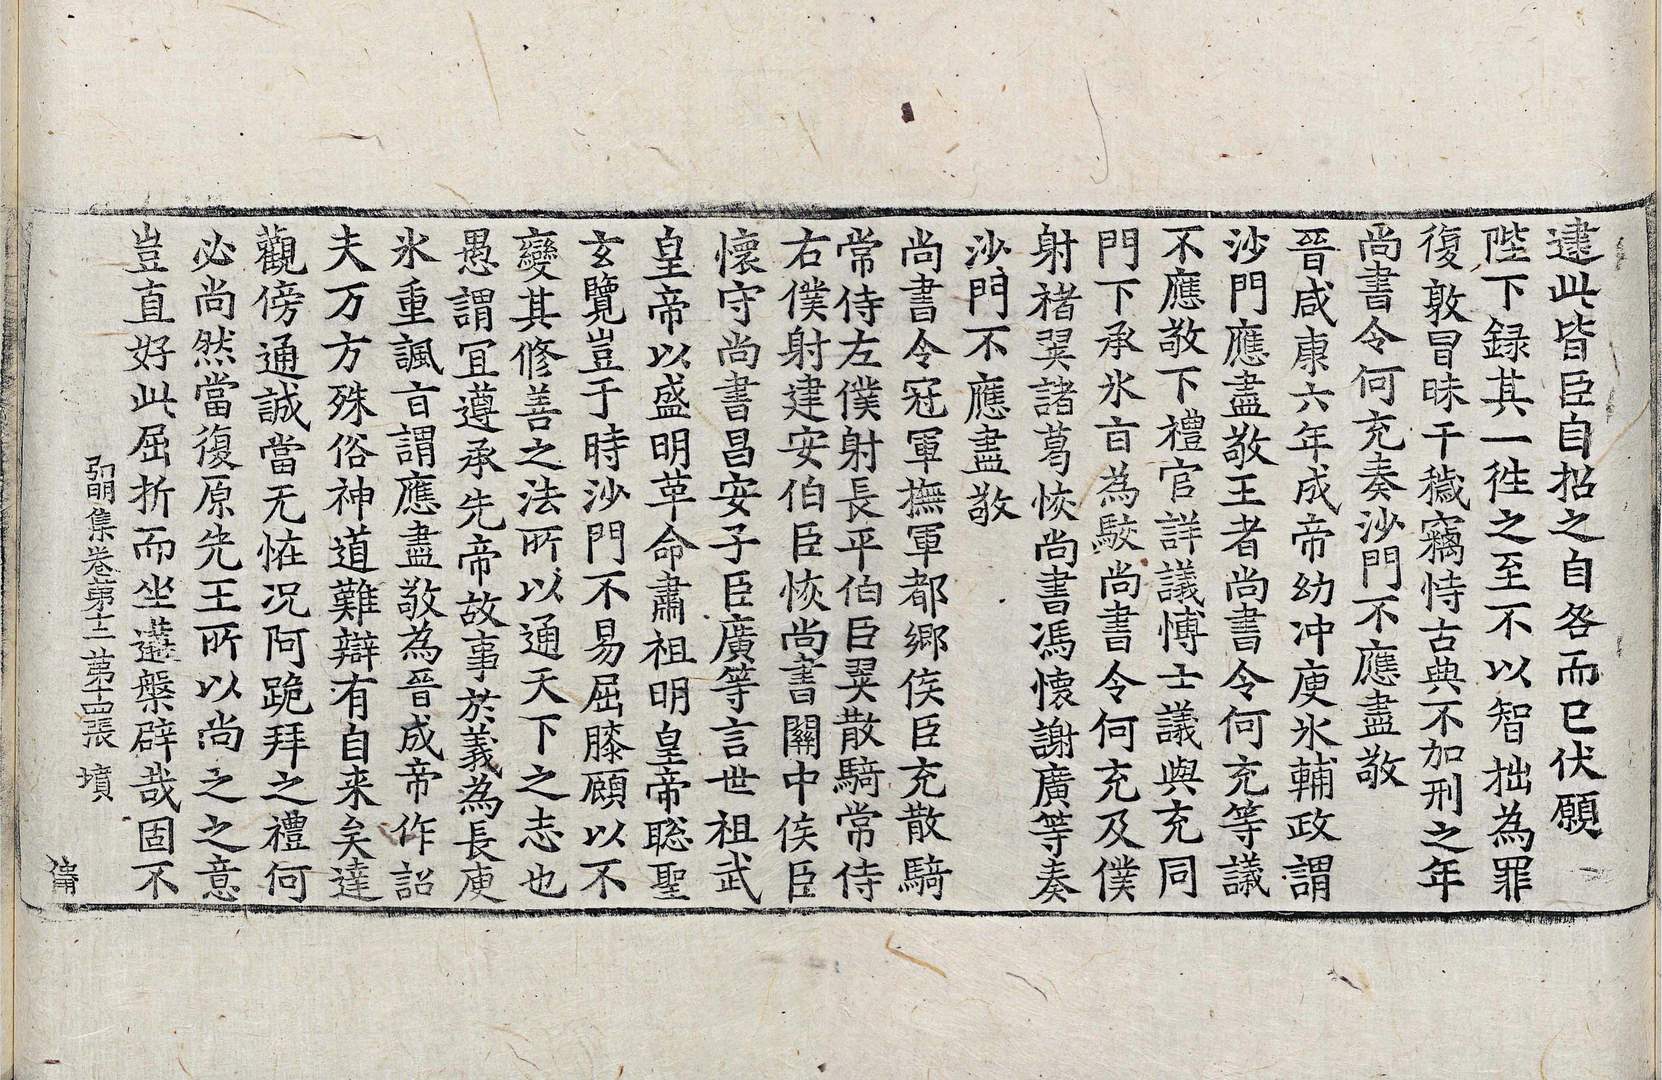 逮此皆臣自招之自咎而已伏願
陛下録其一往之至不以智拙為罪
復敦冒昧干穢竊恃古典不加刑之年
尚書令何充奏沙門不應盡敬
晉咸康六年成帝幼冲庾氷輔政謂
沙門應盡敬王者尚書令何充等議
不應敬下禮官詳議博士議與充同
門下承氷旨為駮尚書令何充及僕
射褚翜諸葛恢尚書馮懷謝廣等奏
沙門不應盡敬
尚書令冠軍撫軍都鄉侯臣充散騎
常侍左僕射長平伯臣翜散騎常侍
右僕射建安伯臣恢尚書關中侯臣
懷守尚書昌安子臣廣等言世祖武
皇帝以盛明革命肅祖明皇帝聦聖
玄覽豈于時沙門不易屈膝顧以不
變其修善之法所以通天下之志也
愚謂冝遵承先帝故事於義為長庾
氷重諷旨謂應盡敬為晉成帝作詔
夫万方殊俗神道難辯有自来矣達
觀傍通誠當无恠况阿跪拜之禮何
必尚然當復原先王所以尚之之意
豈直好此屈折而坐遘槃辟哉固不
弘明集卷第十二 第十四張 墳